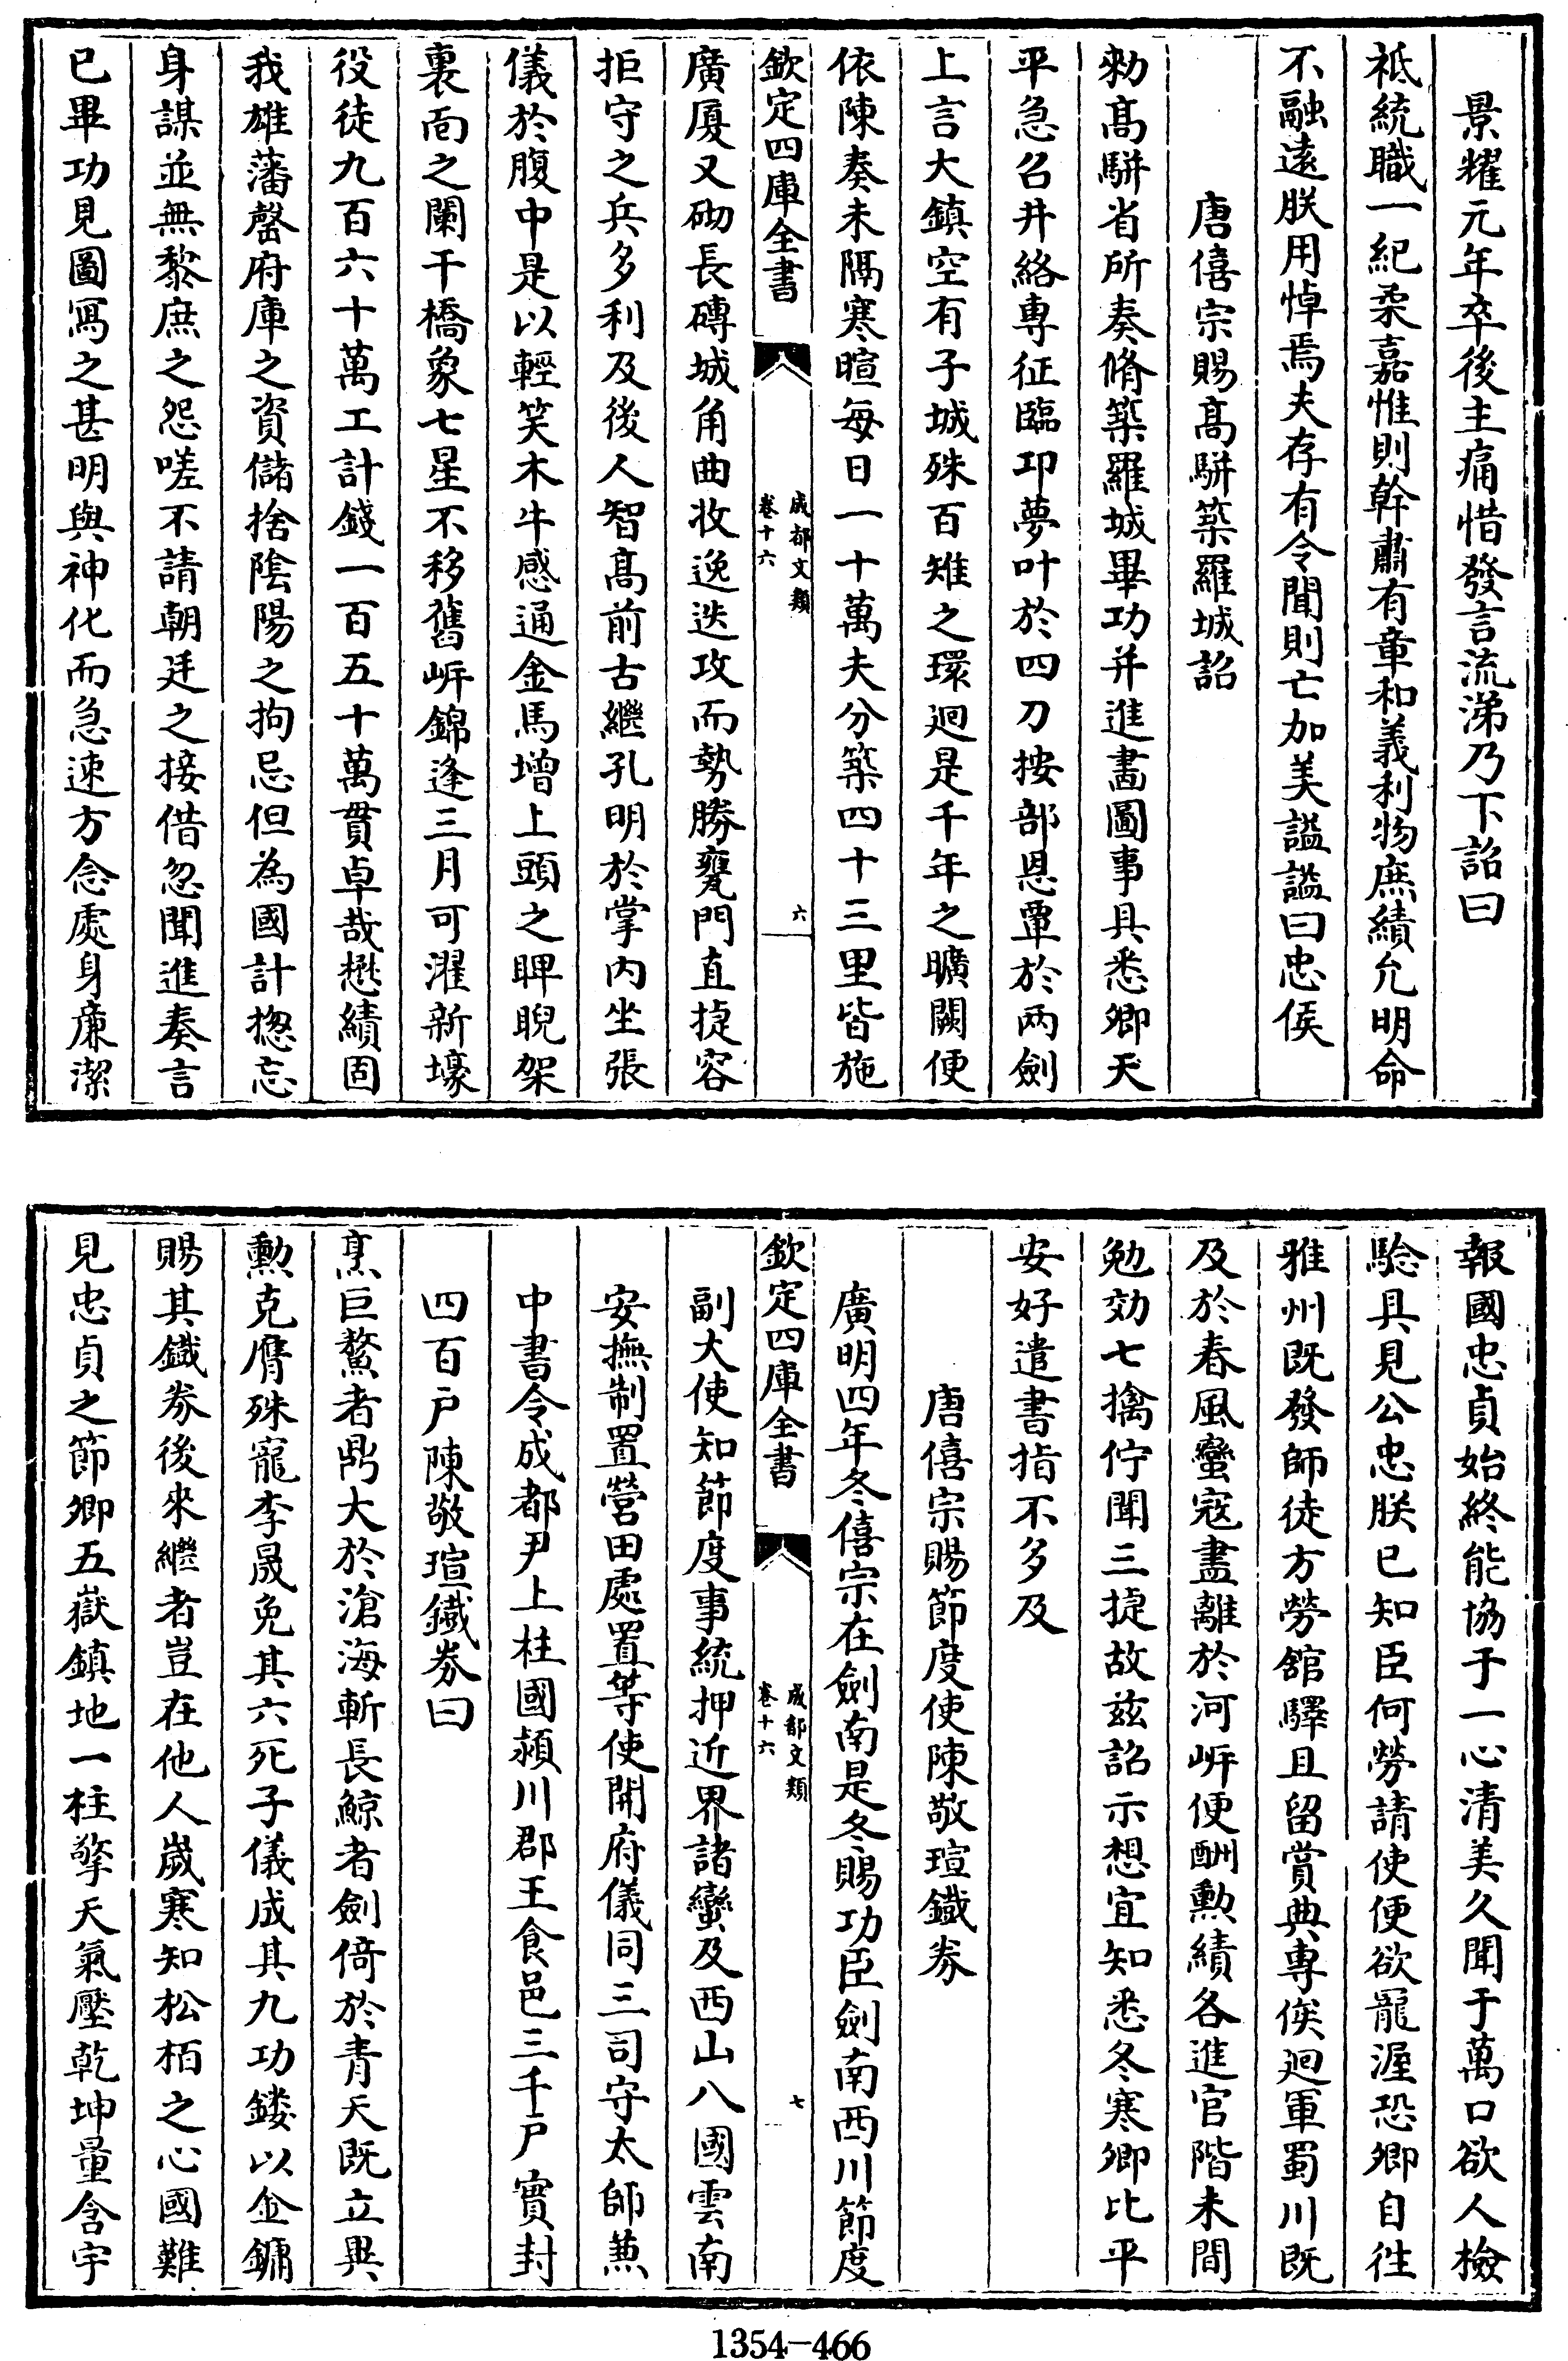 景耀元年卒後主痛惜發言流涕乃下詔曰
祗統職一紀柔嘉惟則幹肅有章和義利物庶績允明命
不融遠朕用悼焉夫存有令聞則亡加美謚謚曰忠侯
唐僖宗賜髙駢築羅城詔
勑髙駢省所奏脩築羅城畢功并進畫圖事具悉卿天
平急召井絡専征臨卭夢叶於四刀按部恩覃於兩劍
上言大鎮空有子城殊百雉之環迴是千年之曠闕便
依陳奏未隔寒暄每日一十萬夫分築四十三里皆施
欽定四庫全書
成都文類
卷十六
六
廣厦又砌長磚城角曲收逸迭攻而勢勝甕門直㨗容
拒守之兵多利及後人智髙前古繼孔明於掌内坐張
儀於腹中是以輕笑木牛感通金馬增上頭之睥睨架
裏面之闌干橋象七星不移舊岍錦逢三月可濯新壕
役徒九百六十萬工計錢一百五十萬貫卓哉懋績固
我雄藩罄府庫之資儲捨陰陽之拘忌但為國計揔忘
身謀並無黎庶之怨嗟不請朝廷之接借忽聞進奏言
已畢功見圖寫之甚明與神化而急速方念處身廉潔
報國忠貞始終能協于一心清美久聞于萬口欲人檢
驗具見公忠朕已知臣何勞請使便欲寵渥恐卿自往
雅州既發師徒方勞舘驛且留賞典專俟迴軍蜀川既
及於春風蠻寇盡離於河岍便酬勲績各進官階未間
勉効七擒佇聞三捷故兹詔示想宜知悉冬寒卿比平
安好遣書指不多及
唐僖宗賜節度使陳敬瑄鐵券
廣明四年冬僖宗在劍南是冬賜功臣劍南西川節度
欽定四庫全書
成都文類
卷十六
七
副大使知節度事統押近界諸蠻及西山八國雲南
安撫制置營田處置等使開府儀同三司守太師兼
中書令成都尹上柱國潁川郡王食邑三千戶實封
四百戶陳敬瑄鐵券曰
烹巨鰲者鼎大於滄海斬長鯨者劍倚於青天既立異
勲克膺殊寵李晟免其六死子儀成其九功鏤以金鏞
賜其鐵券後來繼者豈在他人嵗寒知松栢之心國難
見忠貞之節卿五嶽鎮地一柱擎天氣壓乾坤量含宇
1354-466